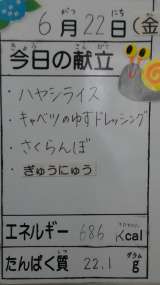 6月22日(金)
がつ にち
今日の献立
きょう こんだて
・ハヤシライス
・キャベツのゆずドレッシング
・さくらんぼ
・ぎゅうにゅう
エネルギー 686 Kcal
たんぱく質 22.1 g
しつ グラム